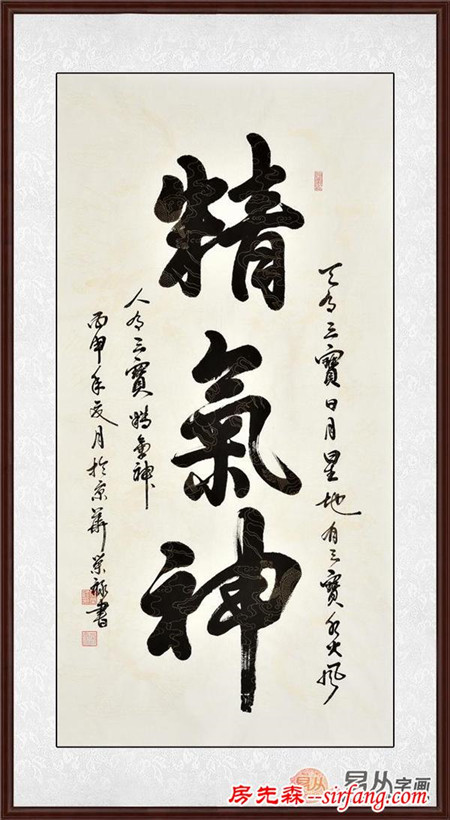 精氣神
天有三寶日月星地有三寶水火風
人有三寶精氣神
丙申年夏月於京華榮祿書
易从字画
房先森--sirfang.com